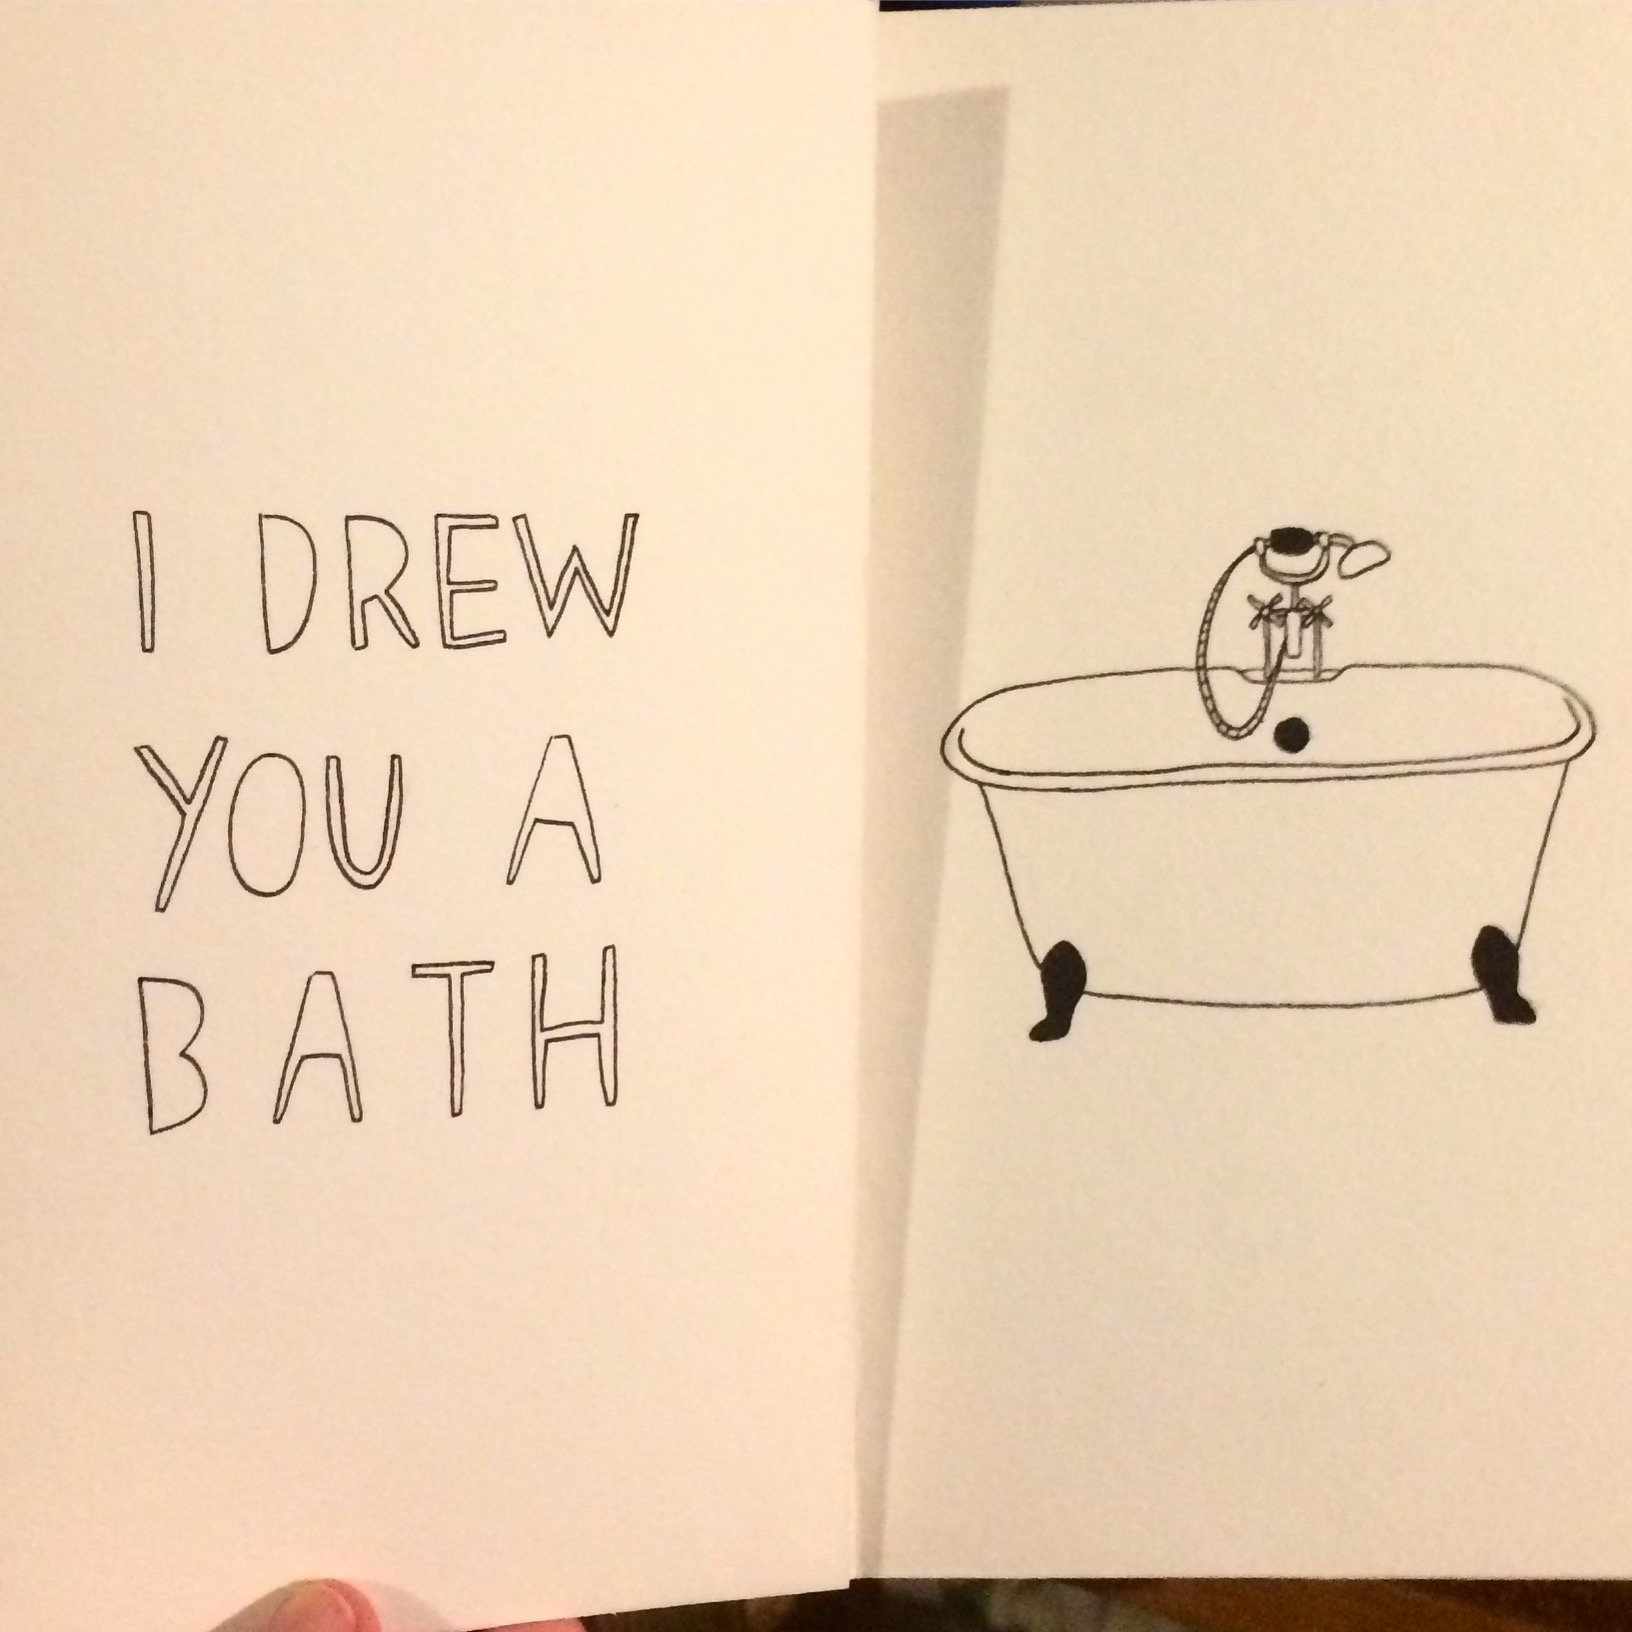 I DREW
YOU A
BATH